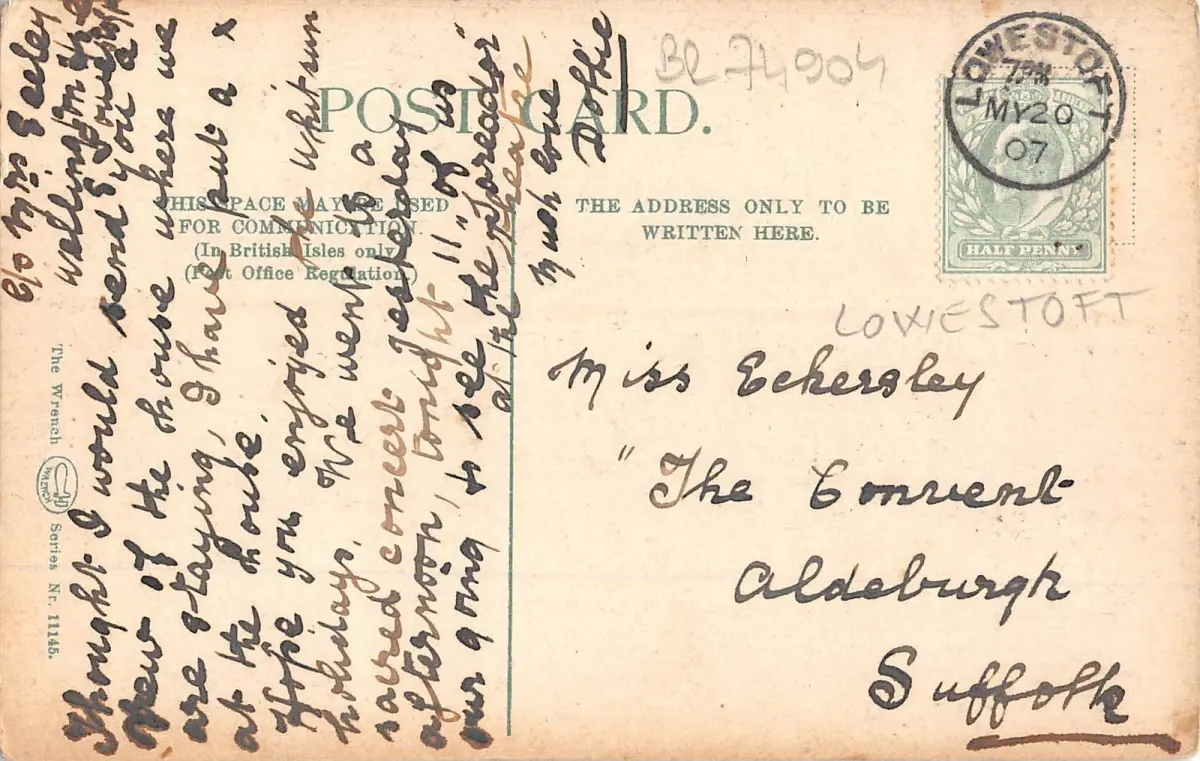 BL 74904
POST CARD.
THIS SPACE MAY BE USED
FOR COMMUNICATION.
(In British Isles only)
(Post Office Regulation.)
THE ADDRESS ONLY TO BE
WRITTEN HERE.
LOWESTOFT
7 PM
MY 20
07
HALF PENNY
LOWESTOFT
The Wrench
WRENCH
Series Nr. 11145.
C/o Mrs
Wellington
Thought I would send you a
view of the house where we
are staying, I have put a x
at the house.
Hope you enjoyed the Whitsun
holidays. We went to a
sacred concert yesterday
afternoon, tonight 11 of us
our going to see the "Squeador"
at the
Much love
Dottie
Miss Eckersley
"The Convent
Aldeburgh
Suffolk